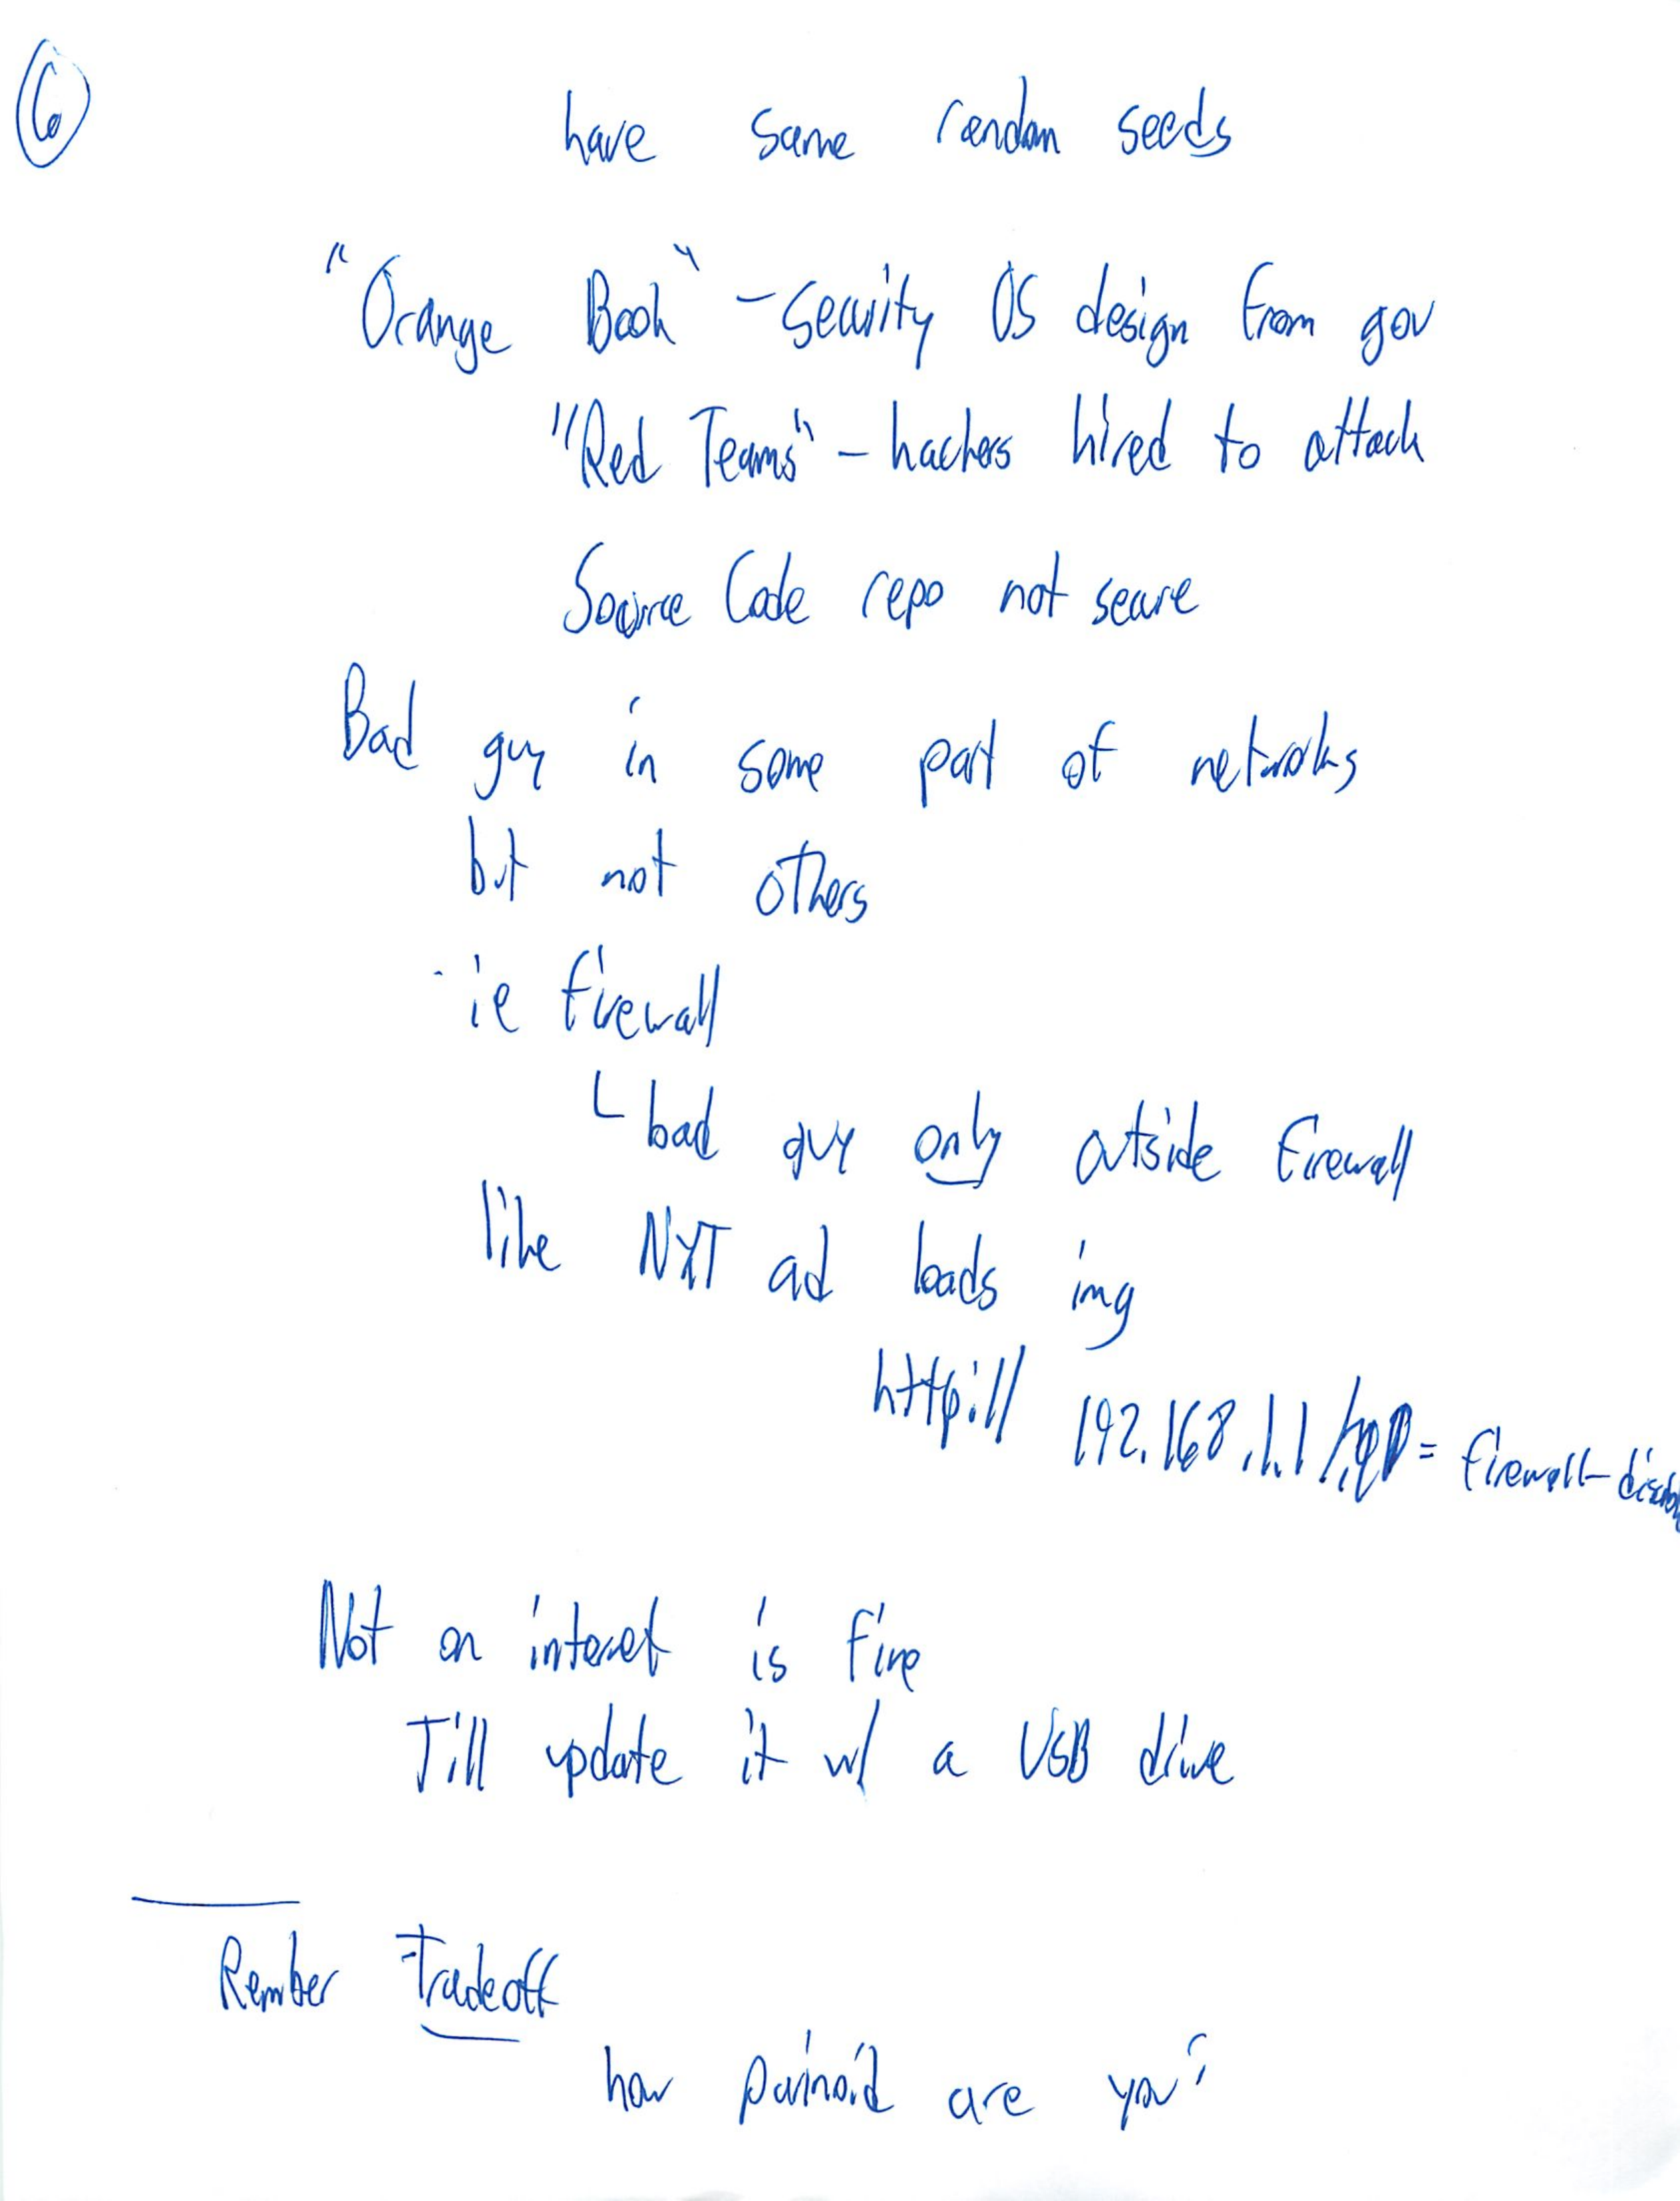 6
have same random seeds
"Orange Book" - Security OS design from gov
"Red Teams" - hackers hired to attack
Source Code repo not secure
Bad guy in some part of networks
but not others
- ie firewall
└ bad guy only outside firewall
like NYT ad loads img
http:// 192.168.1.1/ = firewall-disab
Not on internet is fine
Till update it w/ a USB drive
Rember Tradeoff
how parinoid are you?